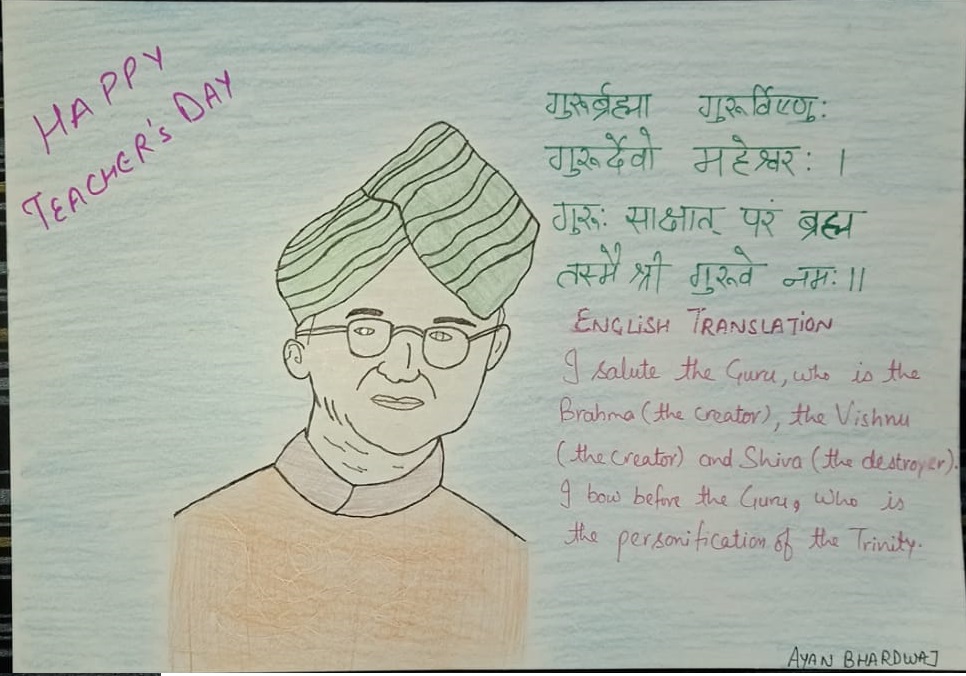 HAPPY
TEACHER'S DAY
गुरुर्ब्रह्मा गुरुर्विष्णु:
गुरुर्देवो महेश्वर: ।
गुरू: साक्षात् परं ब्रह्म
तस्मै श्री गुरूवे नम: ॥
ENGLISH TRANSLATION
I salute the Guru, who is the
Brahma (the creator), the Vishnu
(the creator) and Shiva (the destroyer).
I bow before the Guru, who is
the personification of the Trinity.
AYAN BHARDWAJ